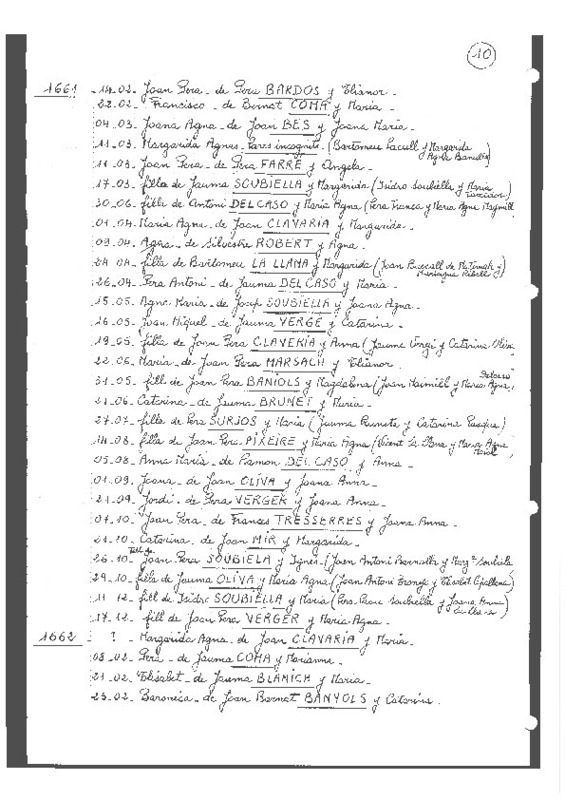 10
1661 - 14.02. Joan Pera - de Pera BARDOS y Elianor -
22.02 - Francisco - de Bernat COMA y Maria -
04.03. Joana Agna - de Joan BES y Joana Maria -
11.03. Margarida Agnes - Pares incognits. (Bartomeu Pacull y Margarida
11.03. Joan Pera - de Pera FARRÉ y Angela -
17.03. filla de Jauma SOUBIELLA y Margarida (Isidro Soubiella y Maria
30.06. filla de Antoni DEL CASO y Maria Agna (Pera Franca y Maria Agna
01.04. Maria Agna - de Joan CLAVARIA y Margarida -
09.04. Agna - de Silvestre ROBERT y Agna -
24.04. filla de Bartomeu LA LLANA y Margarida (Joan
26.04. Pera Antoni - de Jauma DEL CASO y Maria -
15.05. Agna Maria - de Josep SOUBIELLA y Joana Agna -
16.05. Joan Miquel - de Jauma VERGÉ y Catarina -
19.05. filla de Joan Pera CLAVERIA y Anna (Jauma Vergi y Catarina Oliva)
22.06. Maria - de Joan Pera MARSACH y Elianor -
31.05. fill de Joan Pera BANIOLS y Magdalena (Joan y Maria Agna
21.06. Catarina - de Jauma BRUNET y Maria -
27.07. filla de Pera SURJOS y Maria (Jauma y Catarina)
14.08. filla de Joan Pera PIXEIRE y Maria Agna (Vicent La Llana y Maria Agna
05.08. Anna Maria - de Ramon DEL CASO y Anna -
01.09. Joana - de Joan OLIVA y Joana Anna -
21.09. Jordi - de Pera VERGER y Joana Anna -
07.10. Joan Pera - de Frances TRESSERRES y Joana Anna -
21.10. Catarina - de Joan MIR y Margarida -
26.10. fill de Joan Pera SOUBIELA y Agnes - (Joan Antoni
29.10. filla de Jauma OLIVA y Maria Agna (Joan Antoni
11.12. fill de Isidro SOUBIELLA y Maria (Pera Soubiella y Joana Anna
17.12. fill de Joan Pera VERGER y Maria Agna -
1662 ? - Margarida Agna - de Joan CLAVARIA y Maria -
03.02. Pera - de Jauma COMA y Marianna -
21.02. Elisabet - de Jauma BLANICH y Maria -
23.02. Baronica - de Joan Bernat BANYOLS y Catarina -